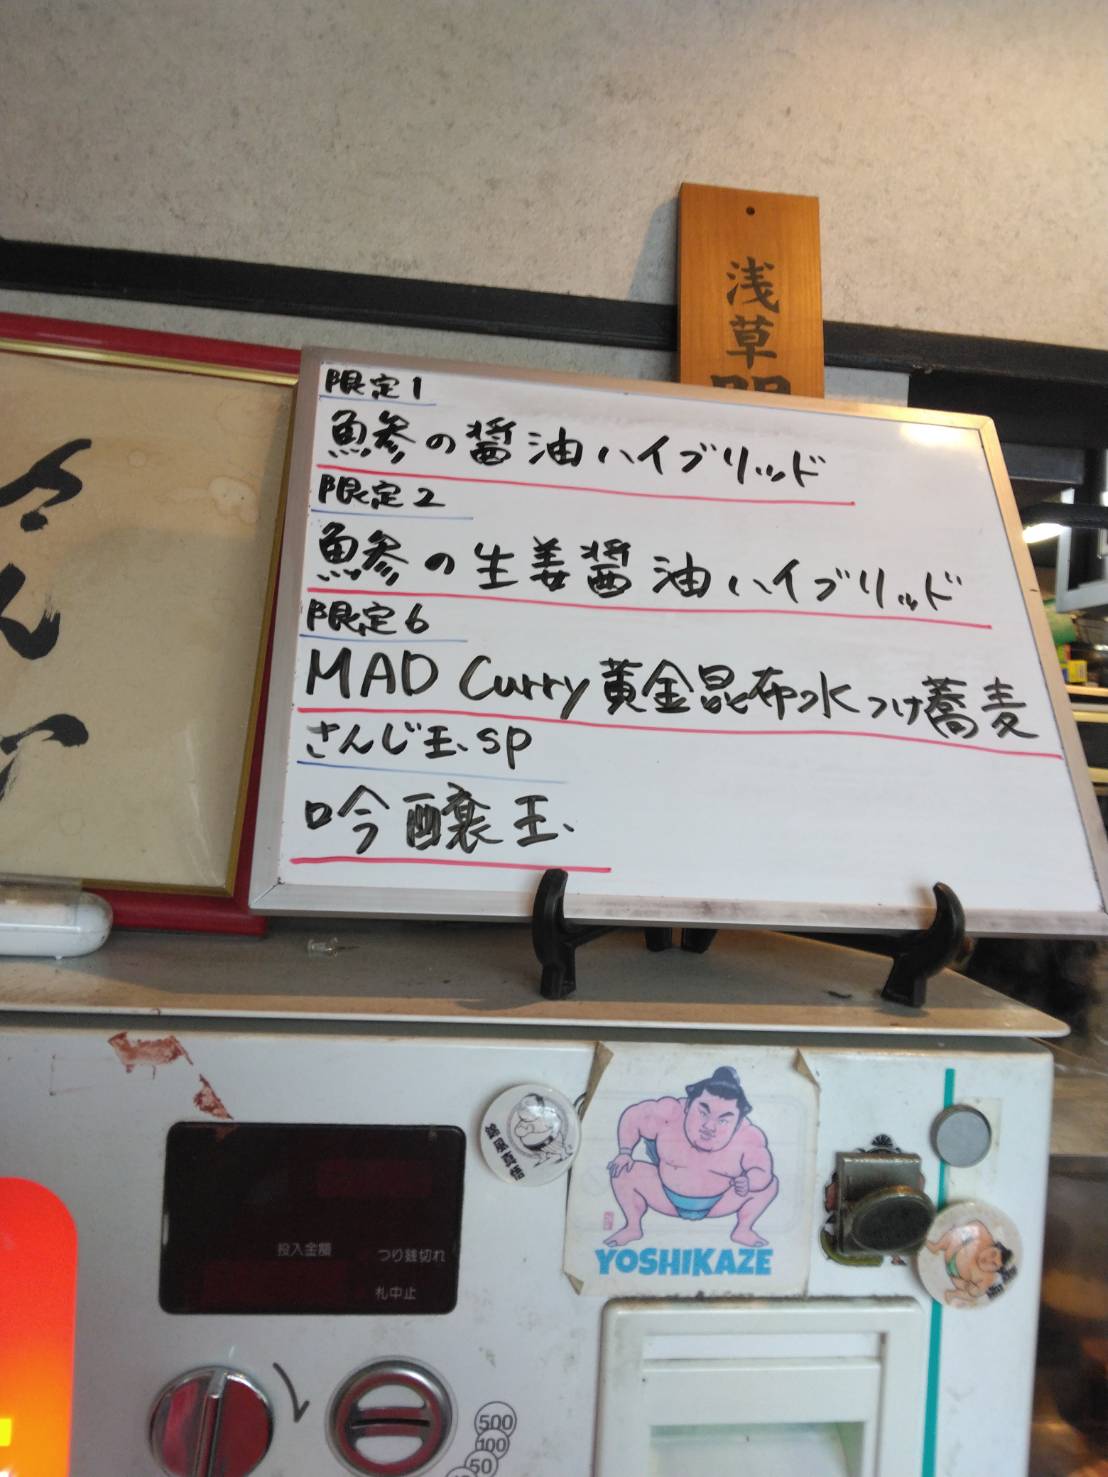 浅草
限定1
鯵の醤油ハイブリッド
限定2
鯵の生姜醤油ハイブリッド
限定6
MAD Curry黄金昆布水つけ蕎麦
さんじ玉SP
吟醸玉
投入金額
つり銭切れ
札中止
YOSHIKAZE
500
100
50